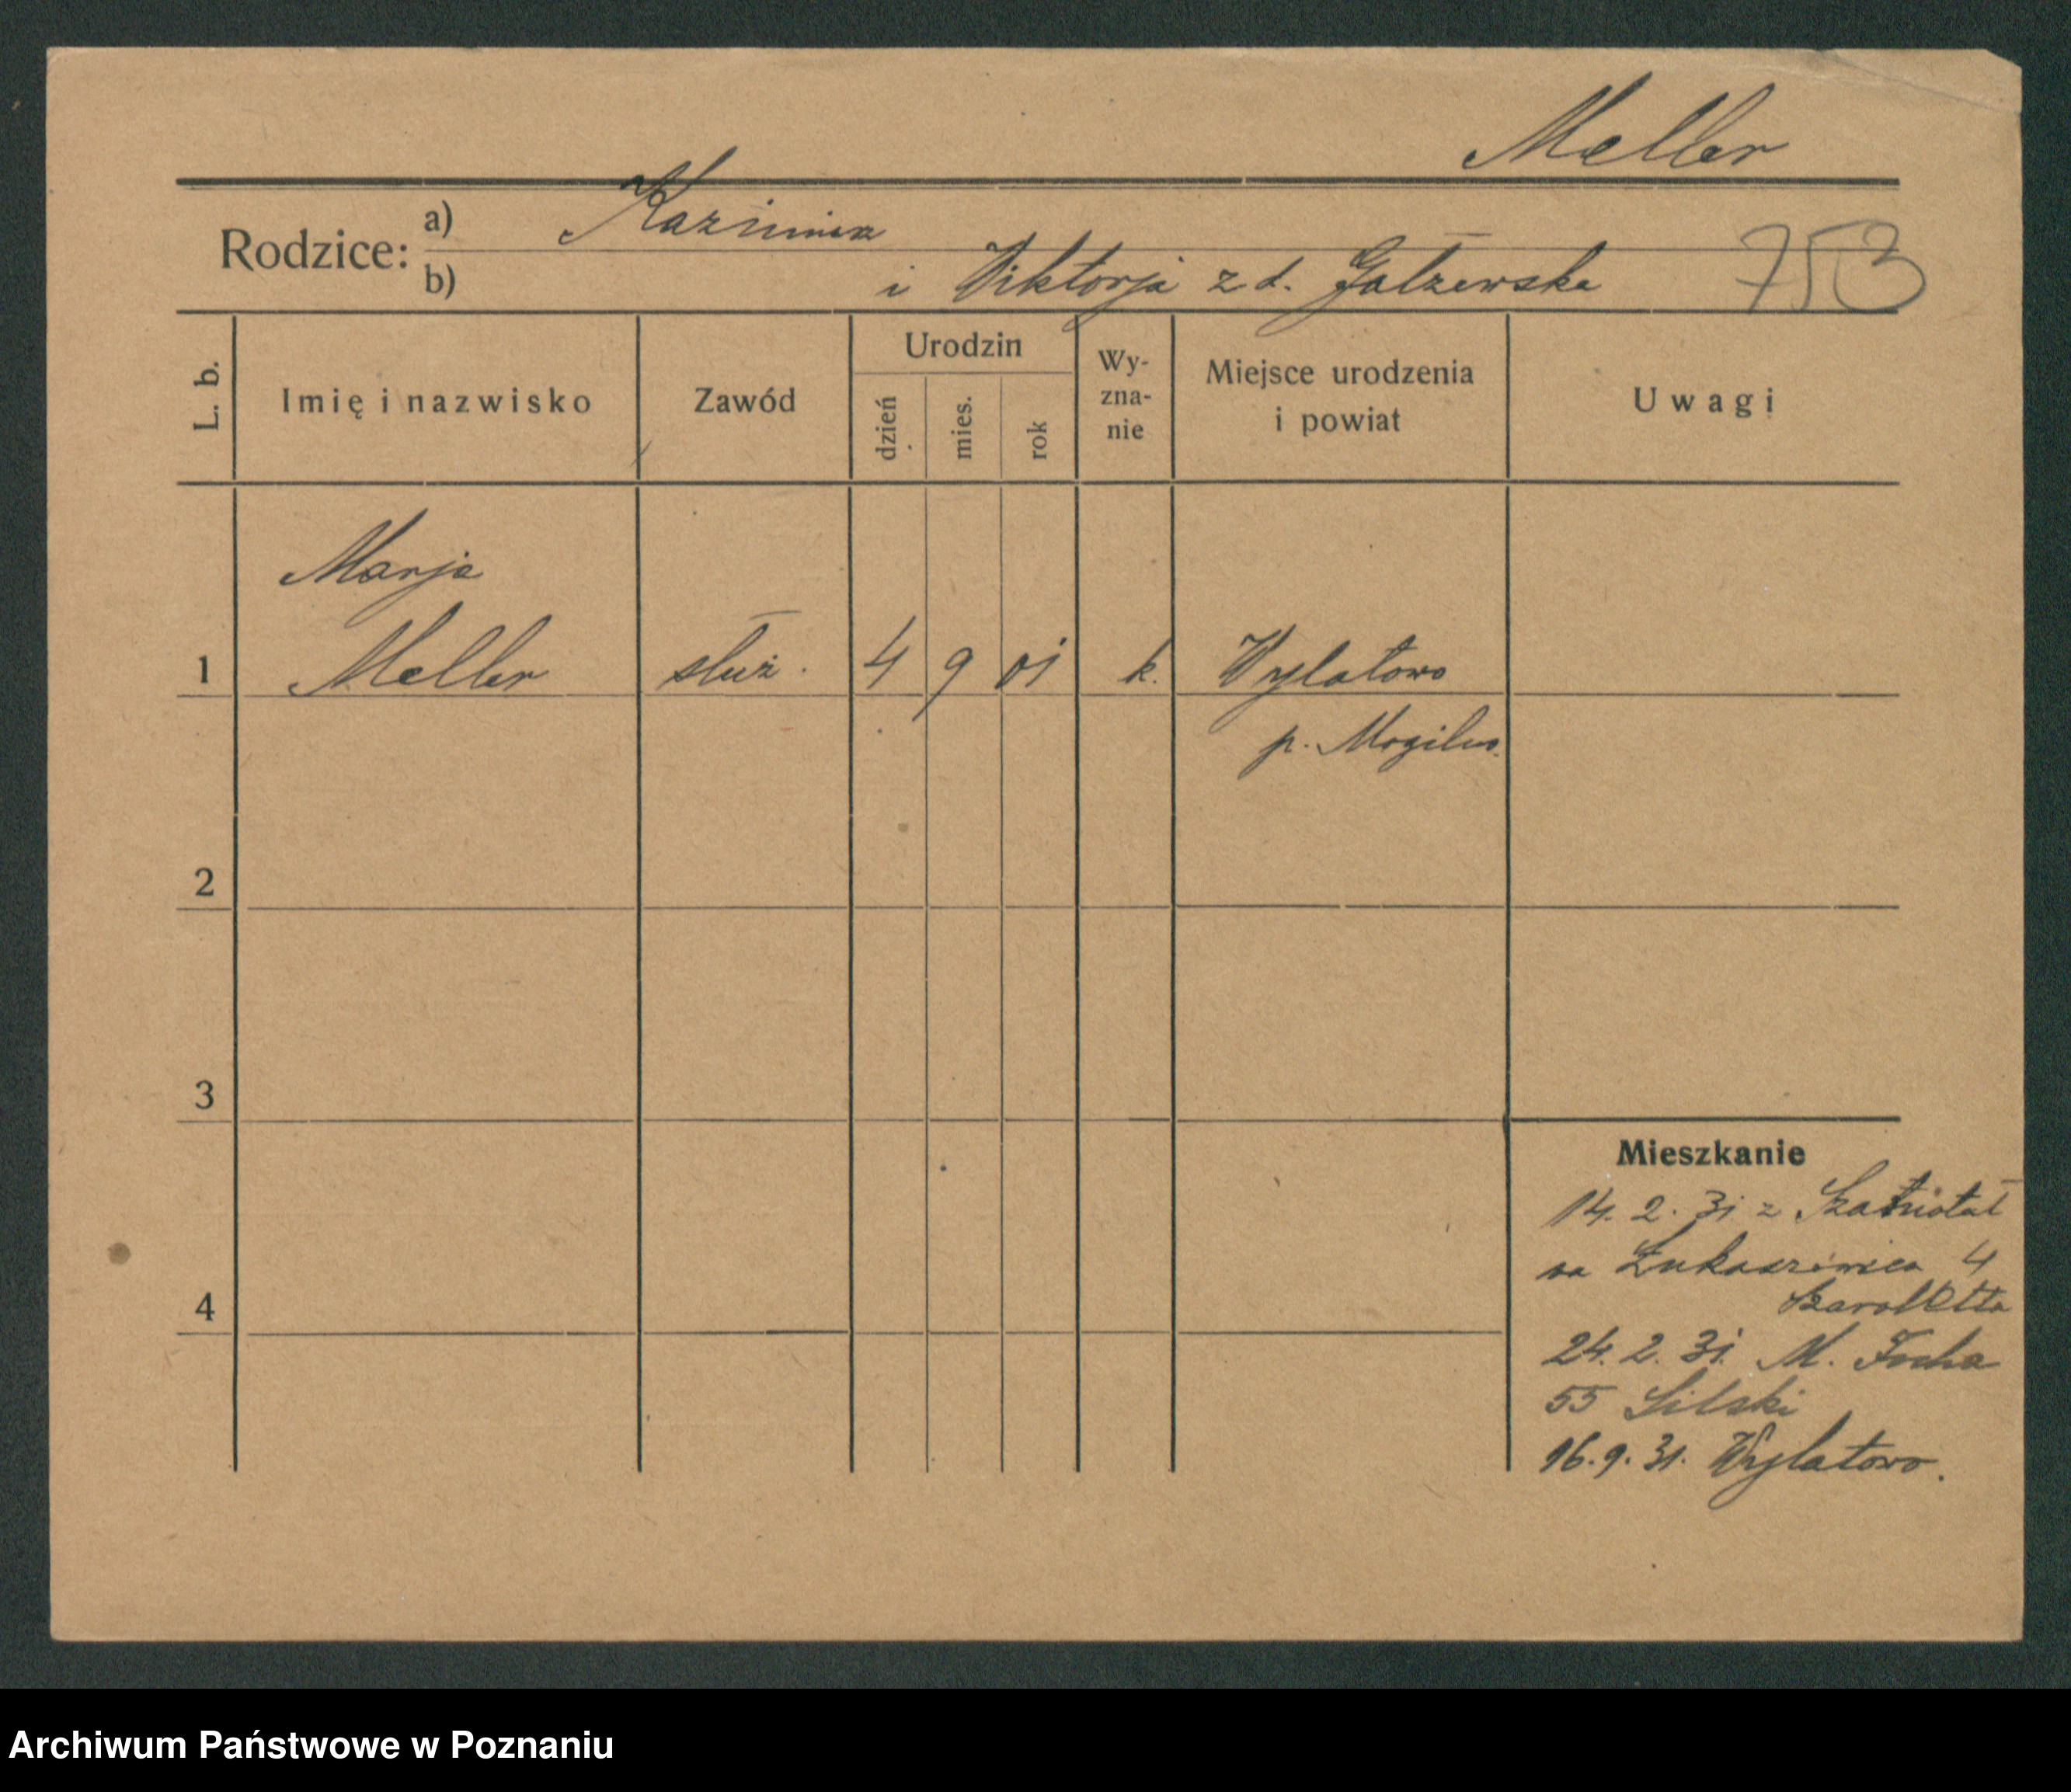 Meller
Rodzice: a) Kazimierz
b) i Wiktorja z d. Galzewska
753
L. b. Imię i nazwisko Zawód Urodzin dzień mies. rok Wy-zna-nie Miejsce urodzenia i powiat Uwagi
Marja
1 Meller służ. 4 9 01 k. Wylatowo
p. Mogilno
2
3
Mieszkanie
14. 2. 31 z
na Łukaszewicza 4
4
24. 2. 31. M. Focha
55 Silski
16. 9. 31. Wylatowo.
Archiwum Państwowe w Poznaniu